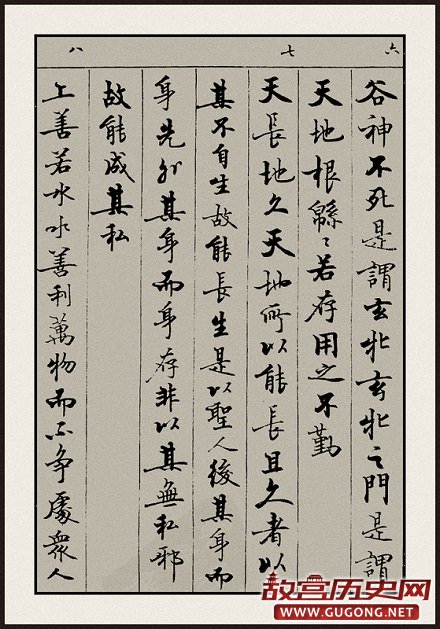 六
谷神不死是謂玄牝玄牝之門是謂
天地根緜〻若存用之不勤
七
天長地久天地所以能長且久者以
其不自生故能長生是以聖人後其身而
身先外其身而身存非以其無私邪
故能成其私
八
上善若水水善利萬物而不争處衆人
故宫历史网
WWW.GUGONG.NET